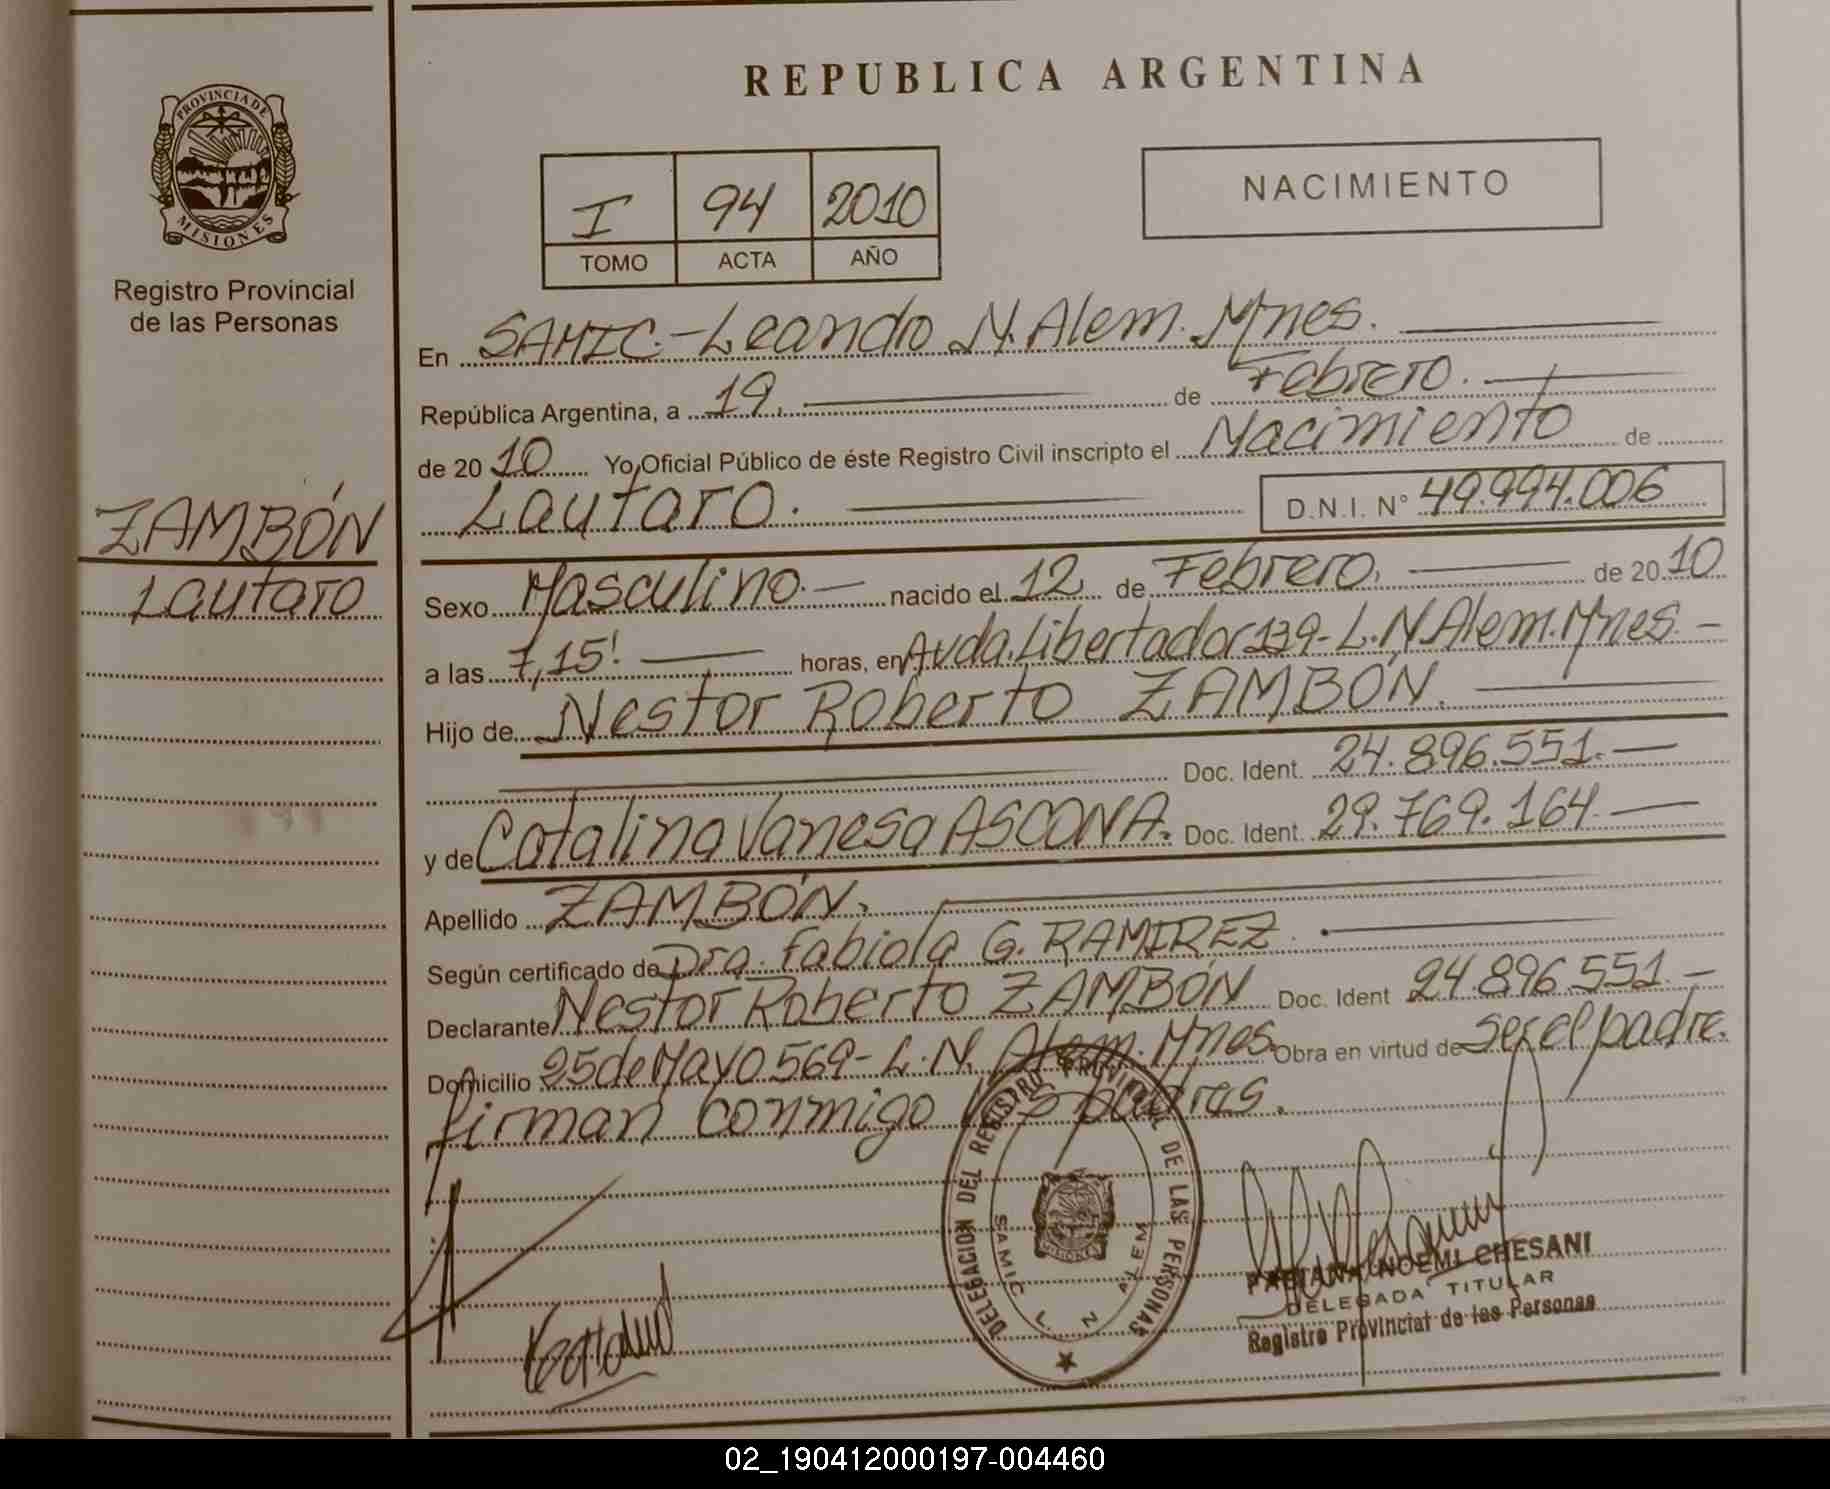 PROVINCIA DE
MISIONES
Registro Provincial
de las Personas
ZAMBÓN
Lautaro
REPUBLICA ARGENTINA
I 94 2010
TOMO ACTA AÑO
NACIMIENTO
En SAMIC.-Leandro N. Alem. Mnes.
República Argentina, a 19. de Febrero.
de 2010 Yo, Oficial Público de éste Registro Civil inscripto el Nacimiento de
Lautaro. D.N.I. N° 49.994.006
Sexo Masculino.- nacido el 12 de Febrero. de 2010
a las 7,15'. horas, en Avda. Libertador 139-L.N Alem. Mnes.-
Hijo de Nestor Roberto ZAMBÓN.
Doc. Ident. 24.896.551.-
y de Catalina Vanesa ASCONA. Doc. Ident. 29.769.164.-
Apellido ZAMBÓN.
Según certificado de Dra. Fabiola G. RAMIREZ.
Declarante Nestor Roberto ZAMBÓN Doc. Ident 24.896.551.-
Domicilio 25 de Mayo 569-L.N. Alem. Mnes. Obra en virtud de ser el padre.
firman conmigo los padres.
DELEGACION DEL REGISTRO PROVINCIAL DE LAS PERSONAS
SAMIC L. N ALEM
MISIONES
FABIANA NOEMI CHESANI
DELEGADA TITULAR
Registro Provincial de las Personas
02_190412000197-004460